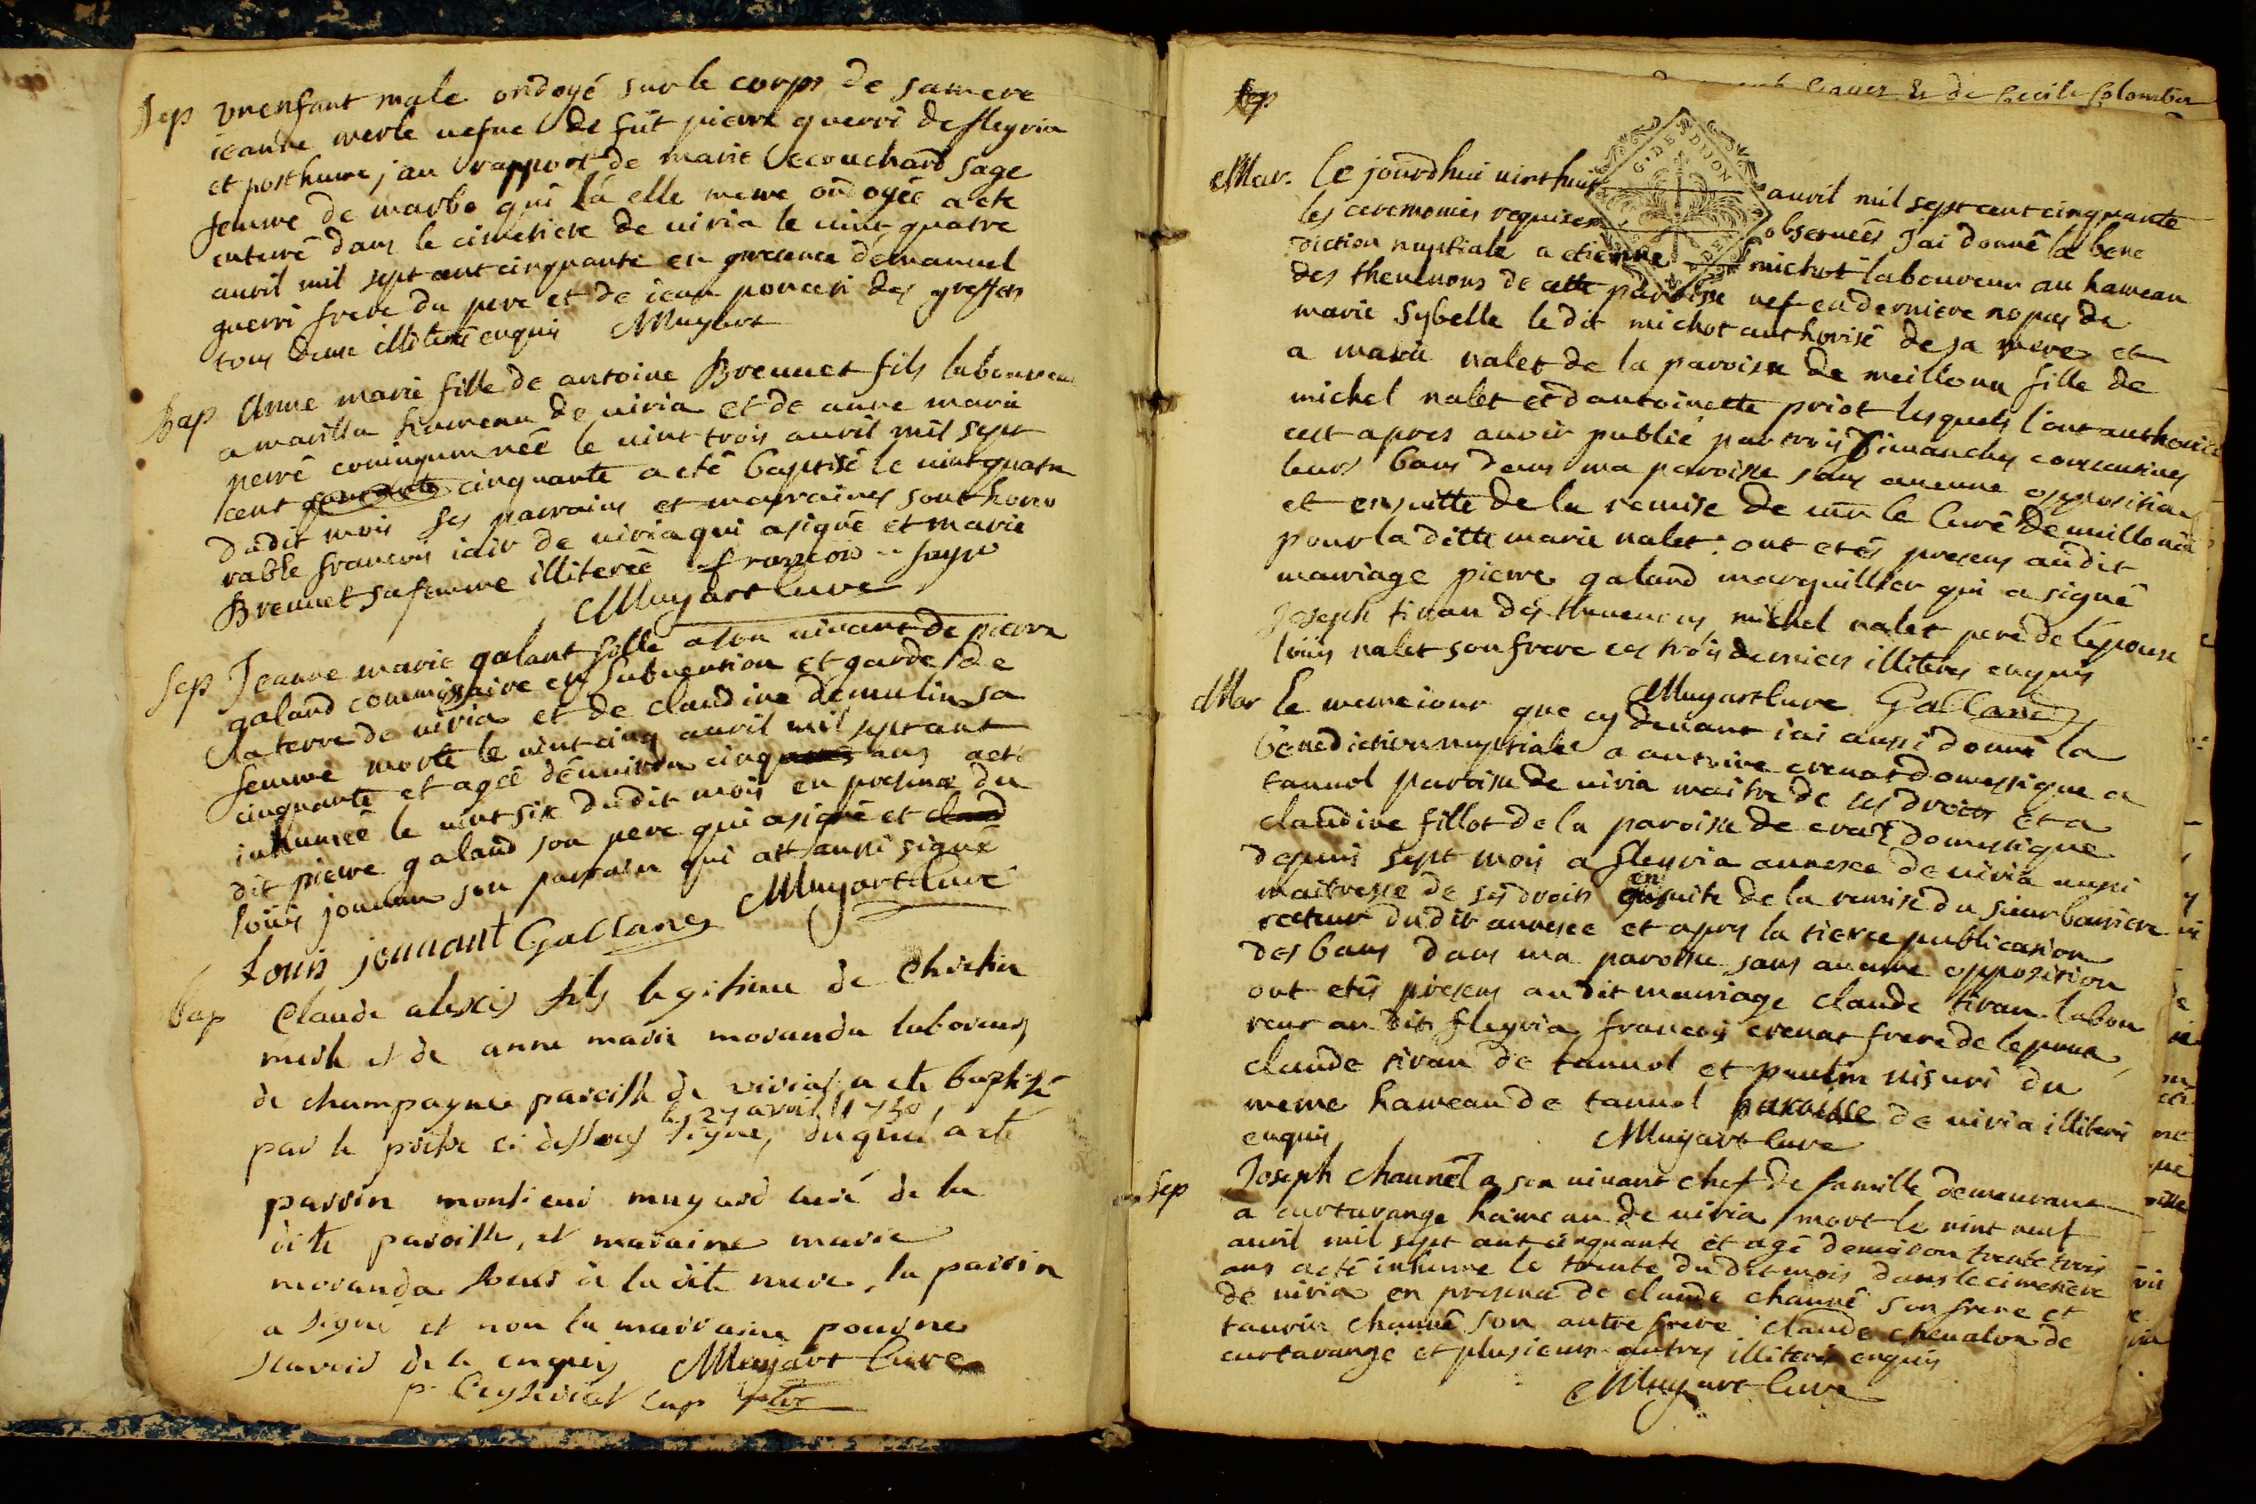 Sep un enfant male ondoyé sur le corps de sa mere
jeanne merle uefue de fût pierre guerri de fleyria
et posthume, au rapport de marie Decouchard sage
femme de marbo qui la elle meme ondoyée a ete
enterré dans le cimetiere de uiria le uint quatre
auril mil sept cent cinquante en presence demanuel
guerri frere du pere et de jean ponceri des greffes
tous deux illiterés enquis Muyart
Bap Anne marie fille de antoine Brennet fils laboureur
a marilla hameau de uiria et de anne marie
perré coniugum née le uint trois auril mil sept
cent cinquante a eté baptisé le uint quatre
dudit mois ses parrains et marraines sont hono
rable francois iair de uiria qui a signé et marie
Brennet sa femme illiterée francois jayr
Muyart Cure
Sep Jeanne marie galant fille a son uiuant de pierre
galand commissaire en subuention et garde de
la terre de uiria et de claudine demulin sa
femme morte le uint cinq auril mil sept cent
cinquante et agée denuiron cinq ans a eté
inhumée le uint six dudit mois en presence du
dit pierre galand son pere qui a signé et
loüis jouuan son parrain qui at aussi signé
Louis jouuant Galland Muyart Curé
bap Claude alexis fils legitime de Christin
merle et de anne marie moranda laboreurs
de champagne paroisse de viria a ete baptisé
le 27 avril 1750
par le prêtre ci dessous signé, duquel a ete
parrin monsieur muyard curé de la
dite paroisse, et maraine marie
moranda soeur à la dite mere, le parrin
a signé et non la marraine pour ne
scavoir de ce enquis Muyart Cure
p. Cap ptre
sep
et de Cecile Colombier
G. DE DIJON
Mar. Ce jourdhui uint huit auril mil sept cent cinquante
les ceremonies requises obseruées J'ai donné la bene
diction nuptiale a etienne michot laboureur au hameau
des theuenons de cette paroisse uef en derniere nopces de
marie Sybelle le dit michot authorisé de sa mere et
a marie nalet de la paroisse de meillonna fille de
michel nalet et d'antoinette priot lesquels l'ont authorisée
cest apres auoir publié par trois Dimanches consecutiues
leurs bans dans ma paroisse sans aucune opposition
et ensuitte de la remise de mr le Curé de meillona
pour la ditte marie nalet. ont etés presens audit
mariage pierre galand marguillier qui a signé
Joseph tiran des theuenons, michel nalet pere de lepouse
loüis nalet son frere ces trois derniers illiteres enquis
Muyart Cure Galland
Mar le meme iour que cy deuant iai aussi donné la
benediction nuptiale a antoine crenat domestique a
tanuol paroisse de uiria maitre de ses droits et a
claudine fillot de la paroisse de domestique
depuis sept mois a fleyria annexe de uiria aussi
maitresse de ses droits en suite de la remise du sieur barriere
recteur dudit annexe et apres la tierce publication
des bans dans ma paroisse sans aucune opposition
ont etés presens audit mariage claude tiran labou
reur au dit fleyria francois crenat frere de lepoux,
claude tiran de tanuol et paulin uisuri du
meme hameau de tanuol paroisse de uiria illiterés
enquis Muyart Cure
Sep Joseph chaunel a son uiuant chef de famille demeurant
a curtarange hameau de uiria mort le uint neuf
auril mil sept cent cinquante et agé denuiron trente trois
ans a eté inhumé le trente dudit mois dans le cimetiere
de uiria en presence de claude chauné son frere et
taurin chauné son autre frere claude cheualon de
curtarange et plusieurs autres illiterés enquis
Muyart Cure